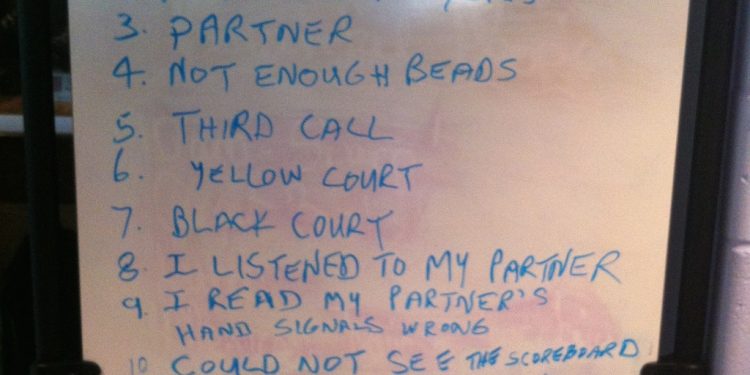 3. PARTNER
4. NOT ENOUGH BEADS
5. THIRD CALL
6. YELLOW COURT
7. BLACK COURT
8 I LISTENED TO MY PARTNER
9. I READ MY PARTNER'S
HAND SIGNALS WRONG
10 COULD NOT SEE THE SCOREBOARD